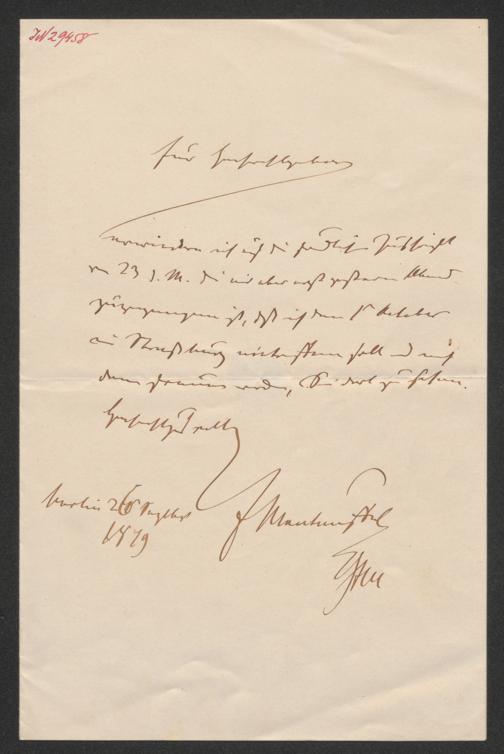 JN 29458
Euer Hochwohlgeboren
erwiedere ich auf die freundliche Zuschrift
vom 23 d. M. die mir aber erst gestern Abend
zugegangen ist, daß ich den 1t October
in Straßburg eintreffen soll und mich
dann freuen werde, Sie dort zu sehen.
Hochachtungsvoll
Berlin 26 Septbr
1879
F Manteuffel